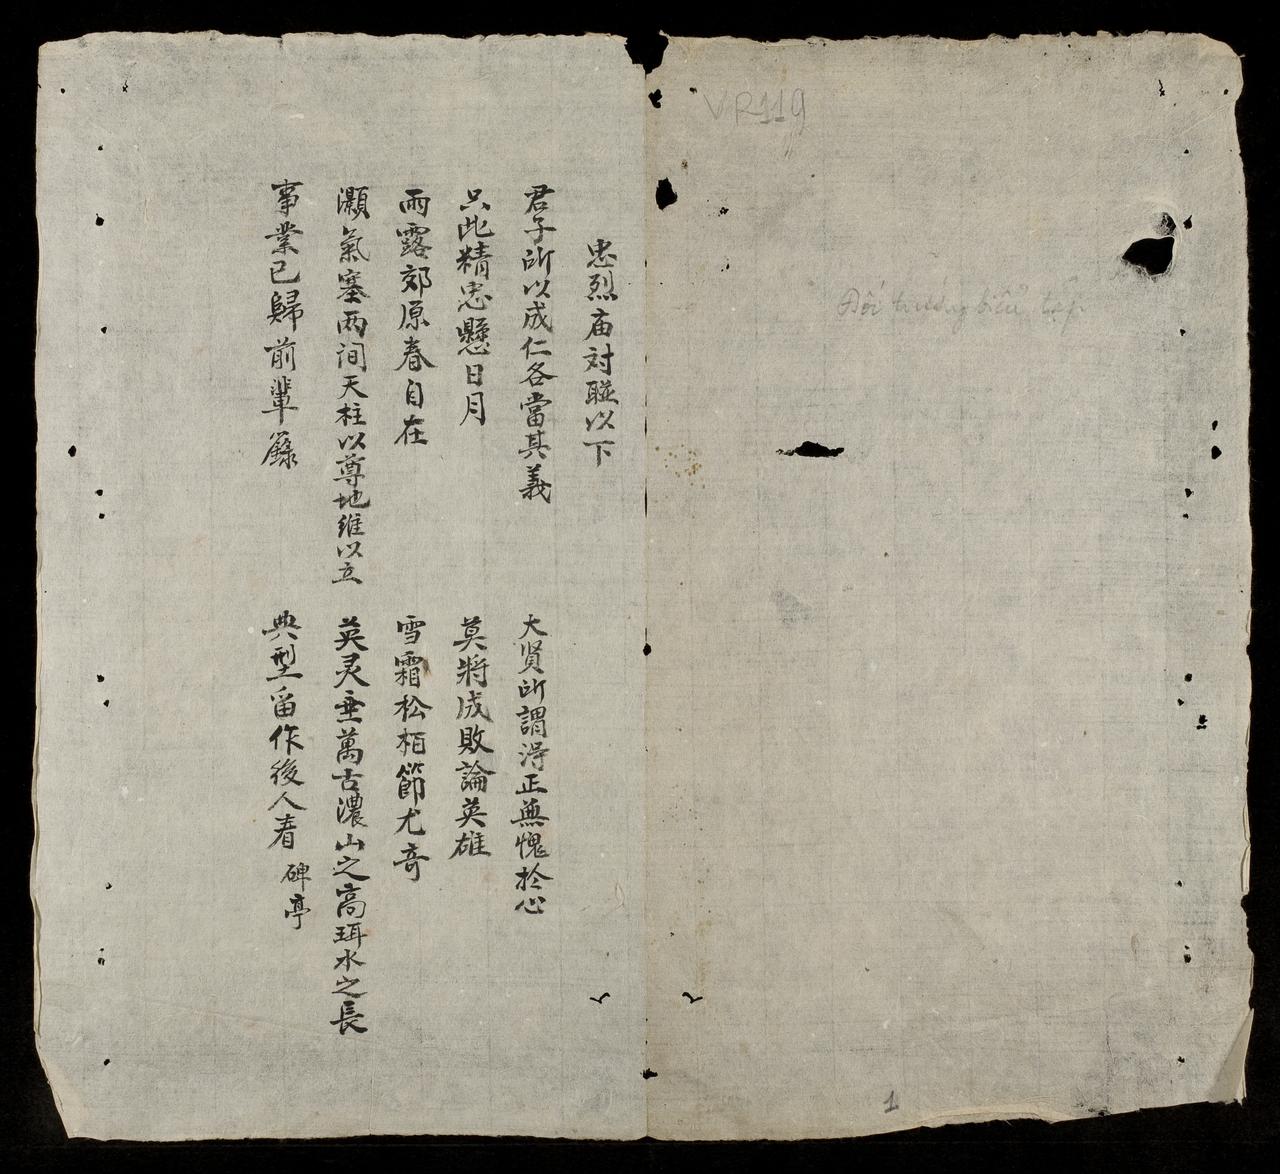 VR119
Đối trướng biểu tập
1
忠烈庙対聮以下
君子所以成仁各當其義
大贤所謂淂正無愧於心
只此精忠懸日月
莫將成敗論英雄
雨露郊原春自在
雪霜松栢節尤竒
灝氣塞两间天柱以尊地維以立
英灵垂萬古濃山之高珥水之長
事業已歸前輩籙
典型畱作後人看
碑亭